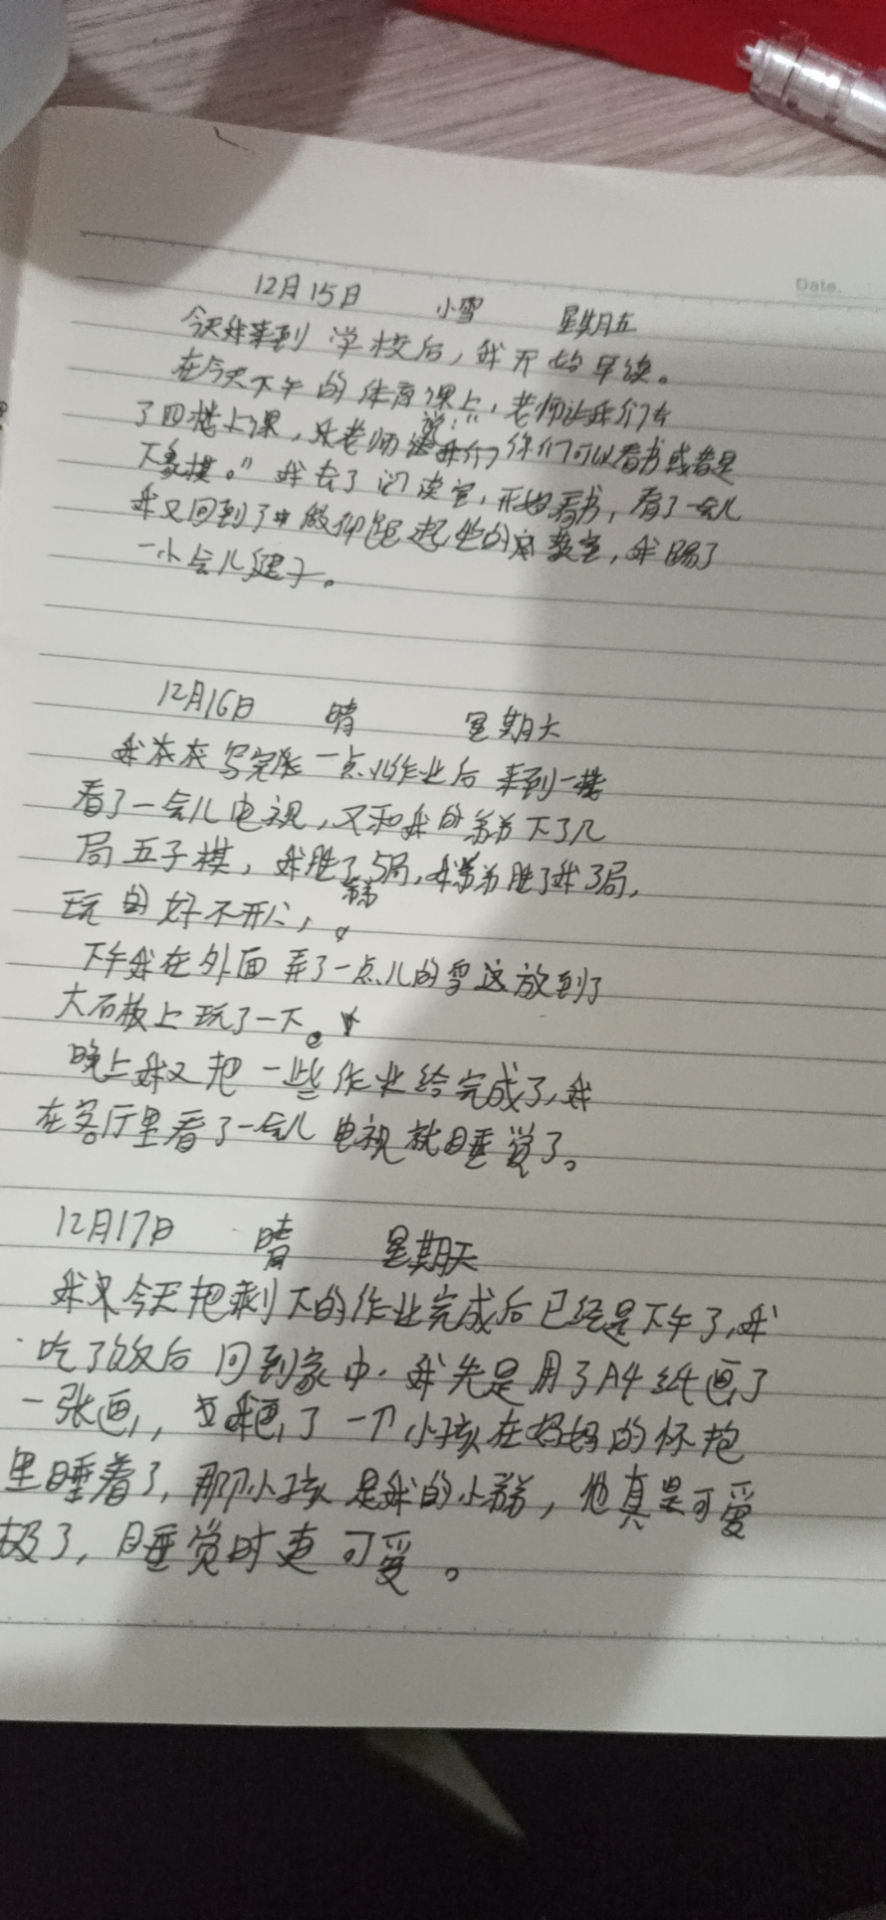 Date.
12月15日 小雪 星期五
今天我来到学校后，我开始早读。
在今天下午的体育课上，老师让我们去
了四楼上课，老师说：“你们可以看书或者是
下象棋。”我去了阅读室，开始看书，看了一会儿
我又回到了做仰卧起坐的教室，我踢了
一小会儿毽子。
12月16日 晴 星期六
我在写完一点儿作业后来到一楼
看了一会儿电视，又和我的弟弟下了几
局五子棋，我胜了5局，弟弟胜了我3局，
玩的好不开心，
下午我在外面弄了一点儿的雪放到了
大石板上玩了一下。
晚上我又把一些作业给完成了，我
在客厅里看了一会儿电视就睡觉了。
12月17日 晴 星期天
我今天把剩下的作业完成后已经是下午了，我
吃了饭后回到家中。我先是用了A4纸画了
一张画，我画了一个小孩在妈妈的怀抱
里睡着了，那个小孩是我的小弟弟，他真是可爱
极了，睡觉时更可爱。